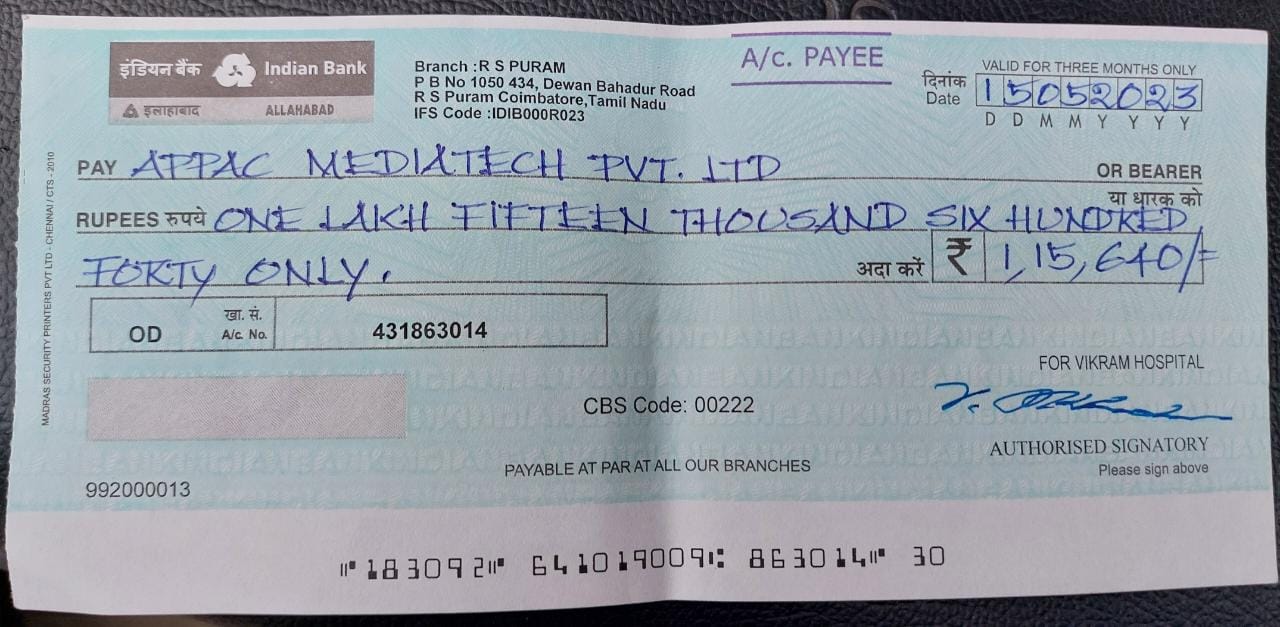 इंडियन बैंक Indian Bank
इलाहाबाद ALLAHABAD
Branch :R S PURAM
P B No 1050 434, Dewan Bahadur Road
R S Puram Coimbatore,Tamil Nadu
IFS Code :IDIB000R023
A/c. PAYEE
VALID FOR THREE MONTHS ONLY
दिनांक
Date 15052023
D D M M Y Y Y Y
PAY APPAC MEDIATECH PVT. LTD OR BEARER
या धारक को
RUPEES रुपये ONE LAKH FIFTEEN THOUSAND SIX HUNDRED
FORTY ONLY. अदा करें ₹ 1,15,640/=
OD खा. सं. A/c. No. 431863014
FOR VIKRAM HOSPITAL
CBS Code: 00222
AUTHORISED SIGNATORY
Please sign above
PAYABLE AT PAR AT ALL OUR BRANCHES
992000013
⑈183092⑈ 641019009⑆ 863014⑈ 30
MADRAS SECURITY PRINTERS PVT LTD - CHENNAI / CTS - 2010